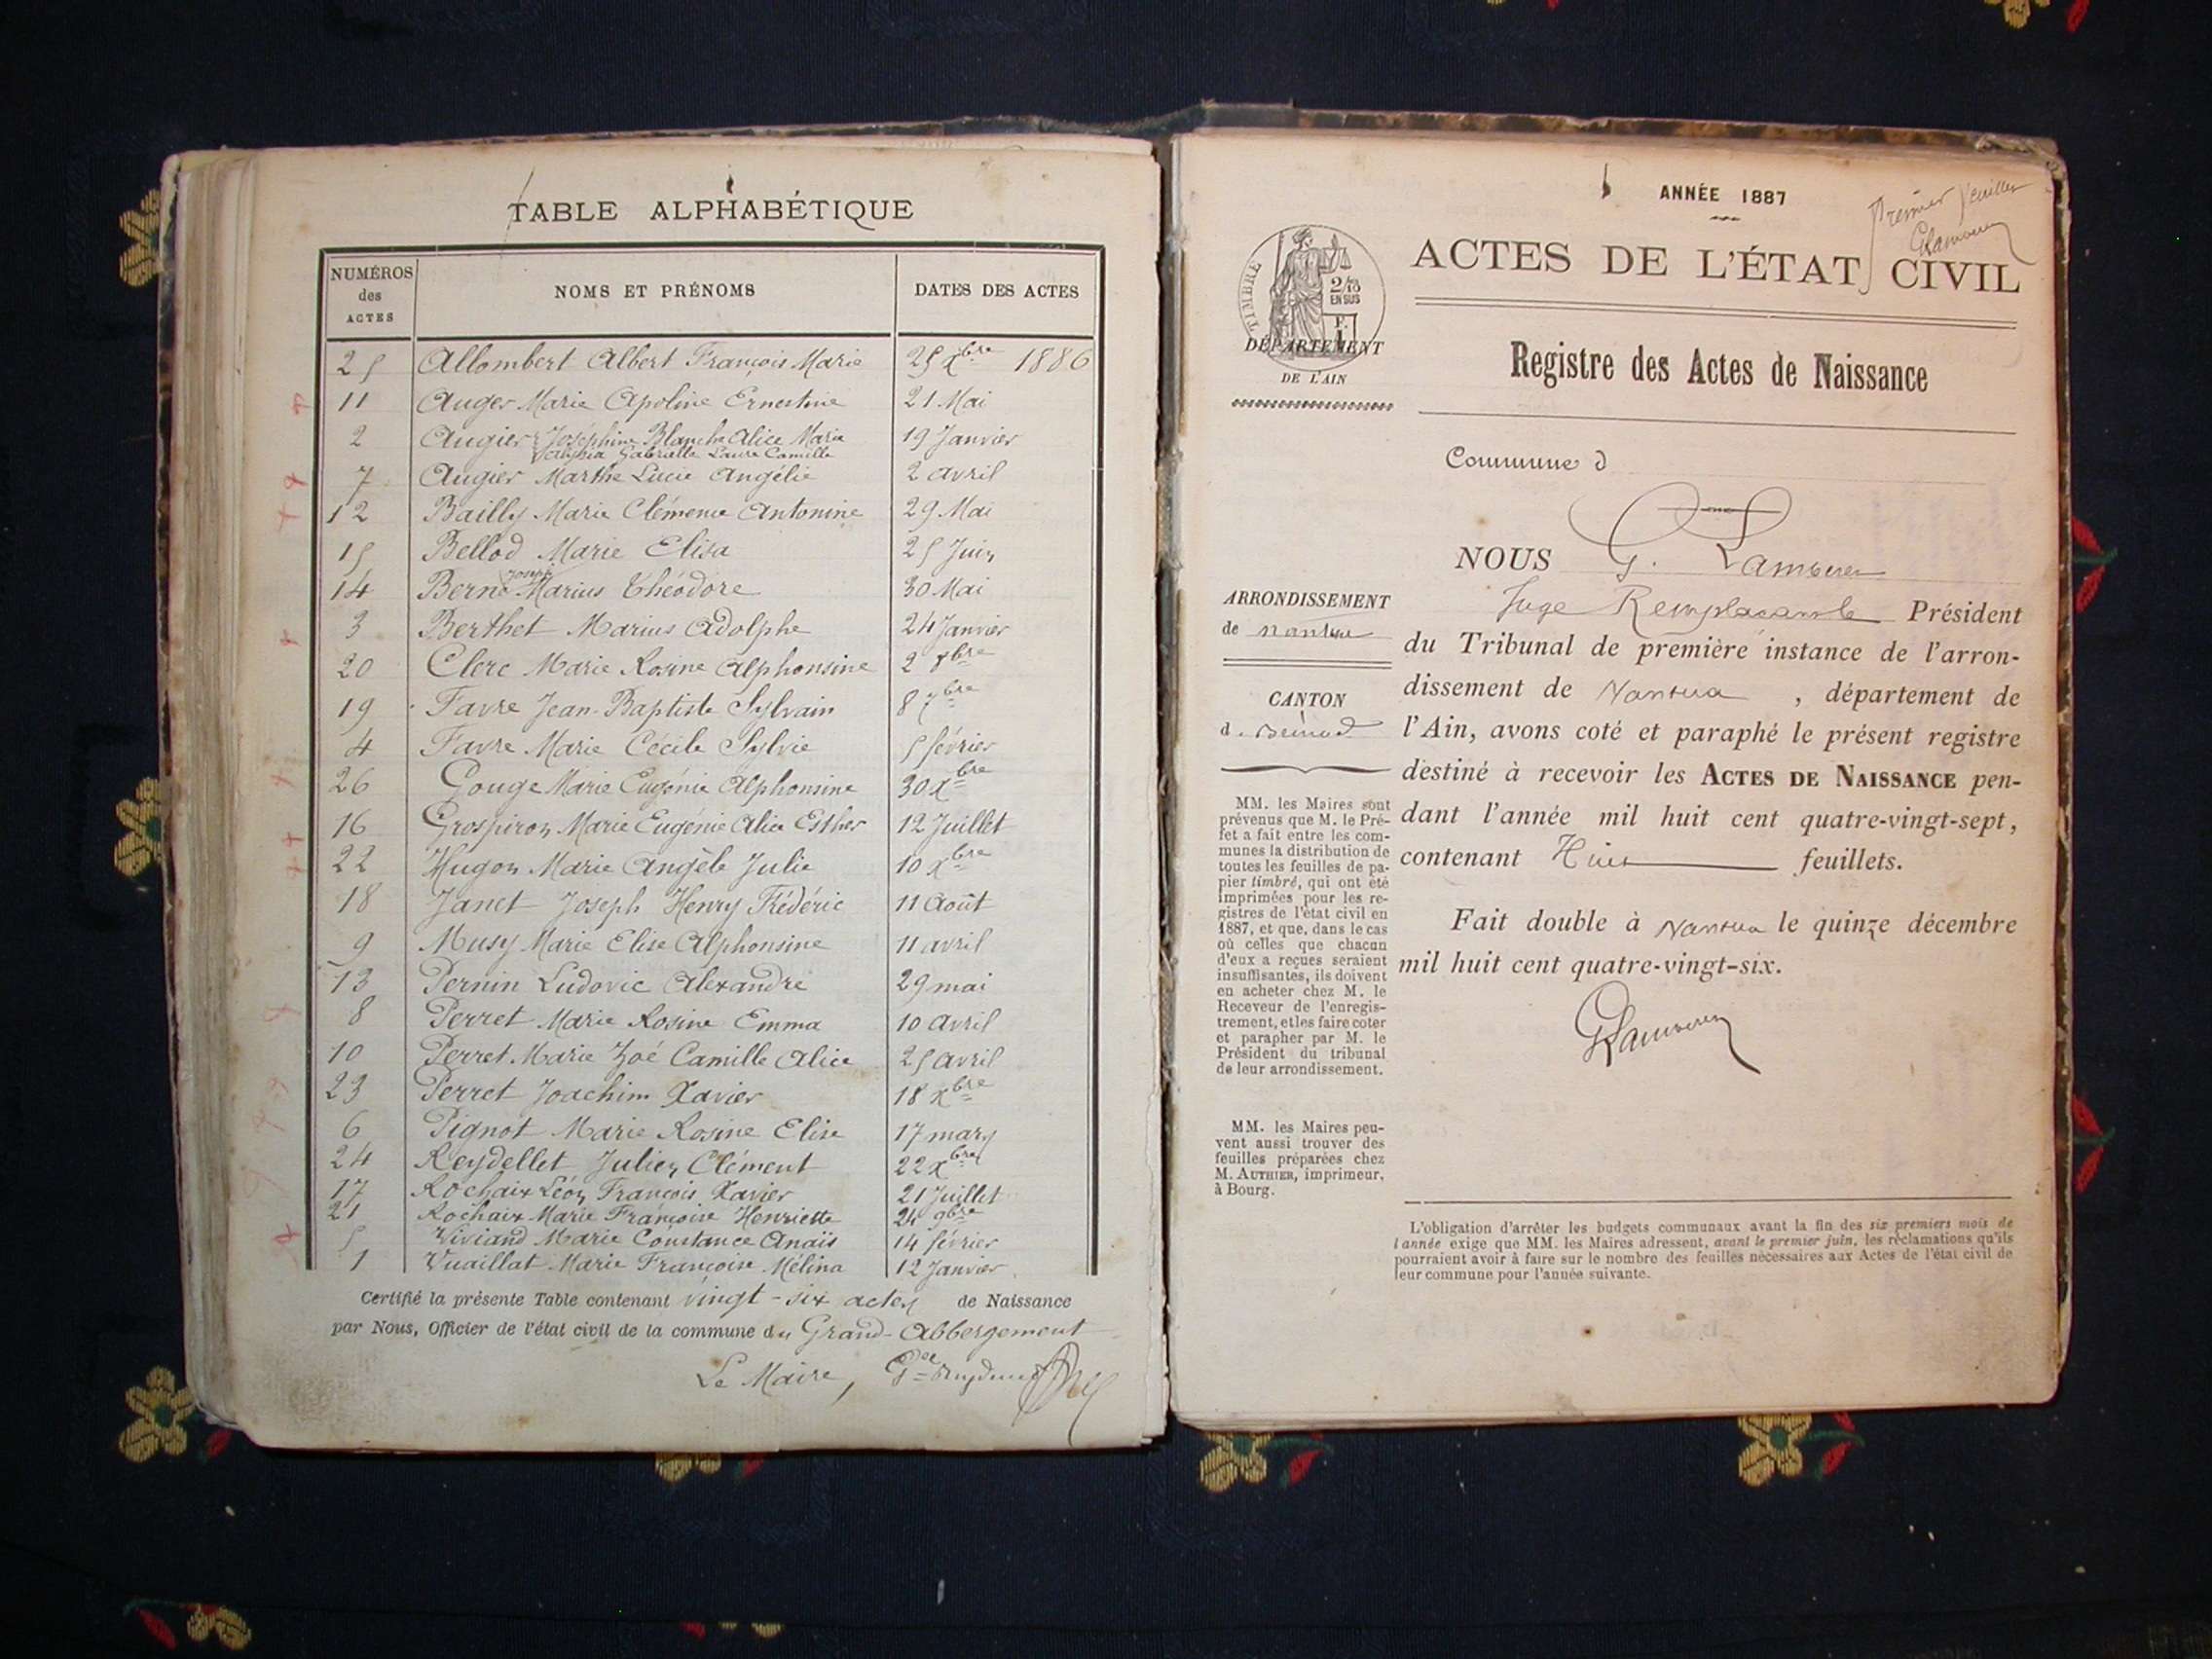 TABLE ALPHABÉTIQUE
NUMÉROS des ACTES
NOMS ET PRÉNOMS
DATES DES ACTES
25 Allombert Albert François Marie 25 Xbre 1886
11 Auger Marie Apoline Ernestine 21 Mai
2 Augier Joséphine Blanche Alice Marie 19 Janvier
Gabrielle Laure Camille
7 Augier Marthe Lucie Angélie 2 avril
12 Bailly Marie Clémence Antonine 29 Mai
15 Bellod Marie Elisa 25 Juin
Joseph
14 Berne Marius Théodore 30 Mai
3 Berthet Marius Adolphe 24 Janvier
20 Clerc Marie Rosine Alphonsine 2 8bre
19 Favre Jean-Baptiste Sylvain 8 7bre
4 Favre Marie Cécile Sylvie 5 février
26 Gouge Marie Eugénie Alphonsine 30 Xbre
16 Grospiron Marie Eugénie Alice Esther 12 Juillet
22 Hugon Marie Angèle Julie 10 Xbre
18 Janet Joseph Henry Frédéric 11 Août
9 Musy Marie Elise Alphonsine 11 avril
13 Pernin Ludovic Alexandre 29 mai
8 Perret Marie Rosine Emma 10 avril
10 Perret Marie Zoé Camille Alice 25 avril
23 Perret Joachim Xavier 18 Xbre
6 Pignot Marie Rosine Elise 17 mars
24 Reydellet Julien Clément 22 Xbre
17 Rochaix Léon François Xavier 21 Juillet
21 Rochaix Marie Françoise Henriette 24 9bre
5 Viviand Marie Constance Anaïs 14 février
1 Vuaillat Marie Françoise Mélina 12 Janvier
Certifié la présente Table contenant vingt-six actes de Naissance
par Nous, Officier de l'état civil de la commune du Grand-Abbergement
Le Maire,
Premier feuillet
ANNÉE 1887
ACTES DE L'ÉTAT CIVIL
TIMBRE
2/10
EN SUS
DÉPARTEMENT
DE L'AIN
Registre des Actes de Naissance
Commune d
NOUS G.
Juge Remplaçant le Président
du Tribunal de première instance de l'arron-
dissement de Nantua, département de
l'Ain, avons coté et paraphé le présent registre
destiné à recevoir les ACTES DE NAISSANCE pen-
dant l'année mil huit cent quatre-vingt-sept,
contenant Huit feuillets.
Fait double à Nantua le quinze décembre
mil huit cent quatre-vingt-six.
ARRONDISSEMENT
de Nantua
CANTON
de
MM. les Maires sont
prévenus que M. le Pré-
fet a fait entre les com-
munes la distribution de
toutes les feuilles de pa-
pier timbré, qui ont été
imprimées pour les re-
gistres de l'état civil en
1887, et que, dans le cas
où celles que chacun
d'eux a reçues seraient
insuffisantes, ils doivent
en acheter chez M. le
Receveur de l'enregis-
trement, et les faire coter
et parapher par M. le
Président du tribunal
de leur arrondissement.
MM. les Maires peu-
vent aussi trouver des
feuilles préparées chez
M. AUTHIER, imprimeur,
à Bourg.
L'obligation d'arrêter les budgets communaux avant la fin des six premiers mois de
l'année exige que MM. les Maires adressent, avant le premier juin, les réclamations qu'ils
pourraient avoir à faire sur le nombre des feuilles nécessaires aux Actes de l'état civil de
leur commune pour l'année suivante.